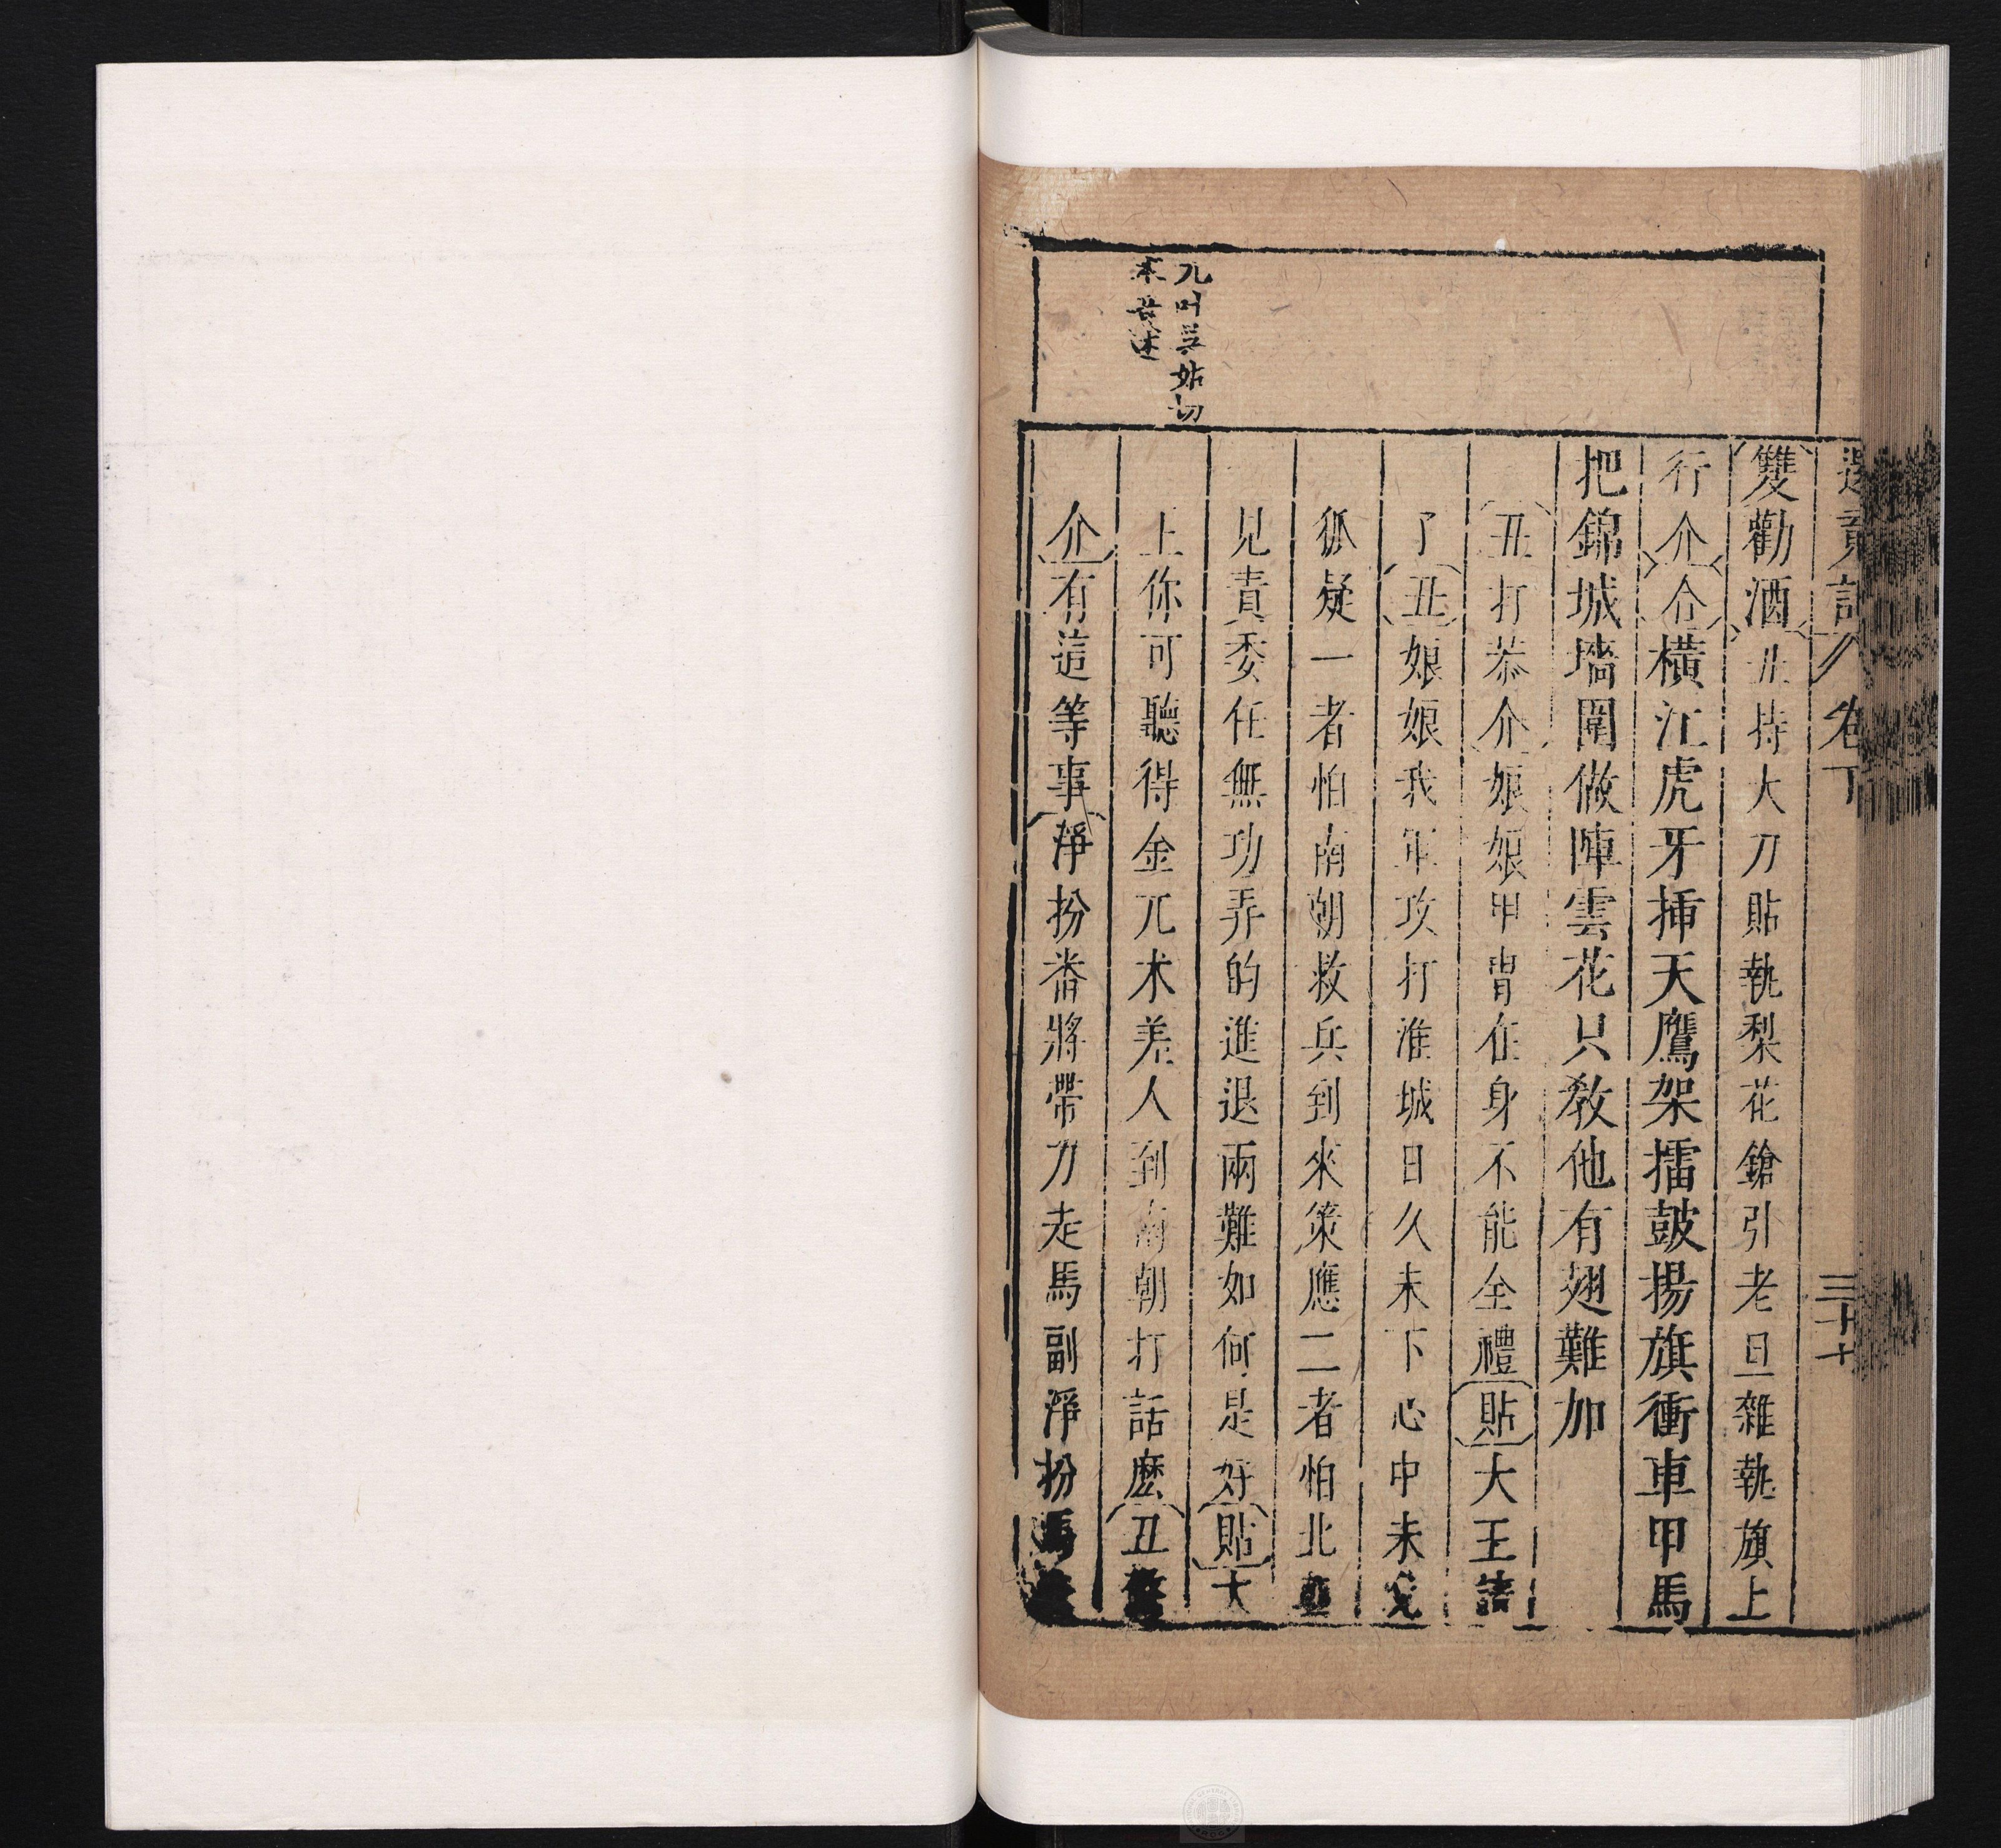 還魂記 卷下 三十
雙勸酒丑持大刀貼執梨花鎗引老旦雜執旗上
行介合橫江虎牙插天鷹架擂鼓揚旗衝車甲馬
把錦城墻圍做陣雲花只教他有翅難加
丑打恭介娘娘甲冑在身不能全禮貼大王請
了丑娘娘我軍攻打淮城日久未下心中未免
狐疑一者怕南朝救兵到來策應二者怕北
見責委任無功弄的進退兩難如何是好貼大
上你可聽得金兀术差人到南朝打話麽丑
介有這等事淨扮番將帶刀走馬副淨扮